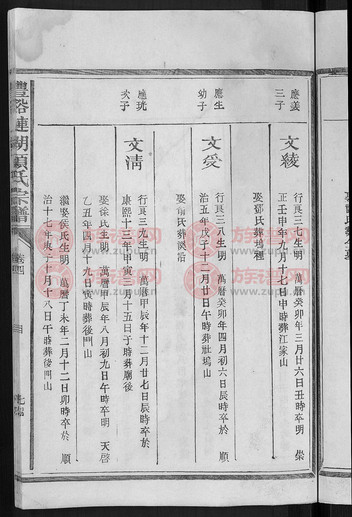 應義
三子
文綾
行良三七生明 萬曆癸卯年三月廿六日丑時卒明 崇
正壬申年九月十七日申時葬江家山
娶鄧氏葬塢裡
應生
幼子
文受
行良三八生明 萬曆癸卯年四月初六日辰時卒於 順
治五年戊子十二月廿日午時葬社塢山
娶 氏葬吳沿
應珖
次子
文清
行良三九生明 萬曆甲辰年十二月廿七日辰時卒於
康熙十三年甲寅三月十五日子時葬廟後
娶徐氏生明 萬曆甲辰年八月初九日午時卒明 天啓
乙丑年四月十九日寅時葬後門山
繼娶侯氏生明 萬曆丁未年二月十二日卯時卒於 順
治十七年庚子十月十八日午時葬後門山
豐谿蓮湖項氏宗譜
卷四
族谱网
www.zupu.cn